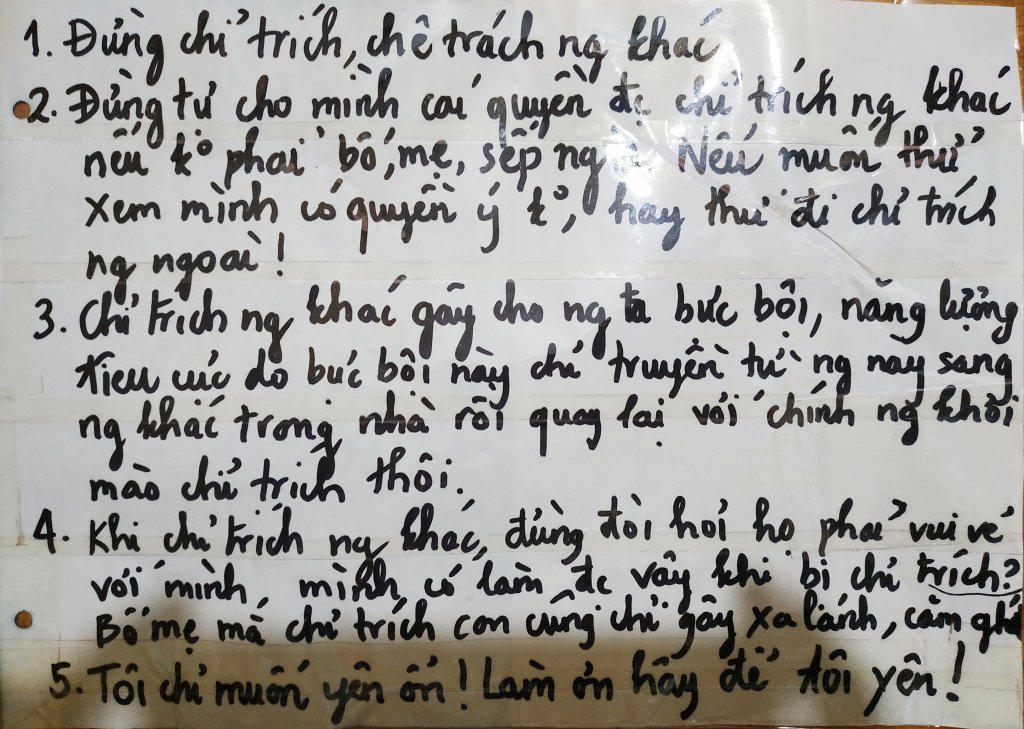 1. Đừng chỉ trích, chê trách ng khác
2. Đừng tự cho mình cái quyền đc chỉ trích ng khác
nếu kº phải bố, mẹ, sếp Nếu muốn thử
xem mình có quyền ý kº, hãy thử đi chỉ trích
ng ngoài!
3. Chỉ trích ng khác gây cho ng ta bực bội, năng lượng
tiêu cực do bực bội này chỉ truyền từ ng này sang
ng khác trong nhà rồi quay lại với chính ng khởi
mào chỉ trích thôi.
4. Khi chỉ trích ng khác, đừng đòi hỏi họ phải vui vẻ
với mình mình có làm đc vậy khi bị chỉ trích?
Bố mẹ mà chỉ trích con cũng chỉ gây xa lánh, căm ghét
5. Tôi chỉ muốn yên ổn! Làm ơn hãy để tôi yên!